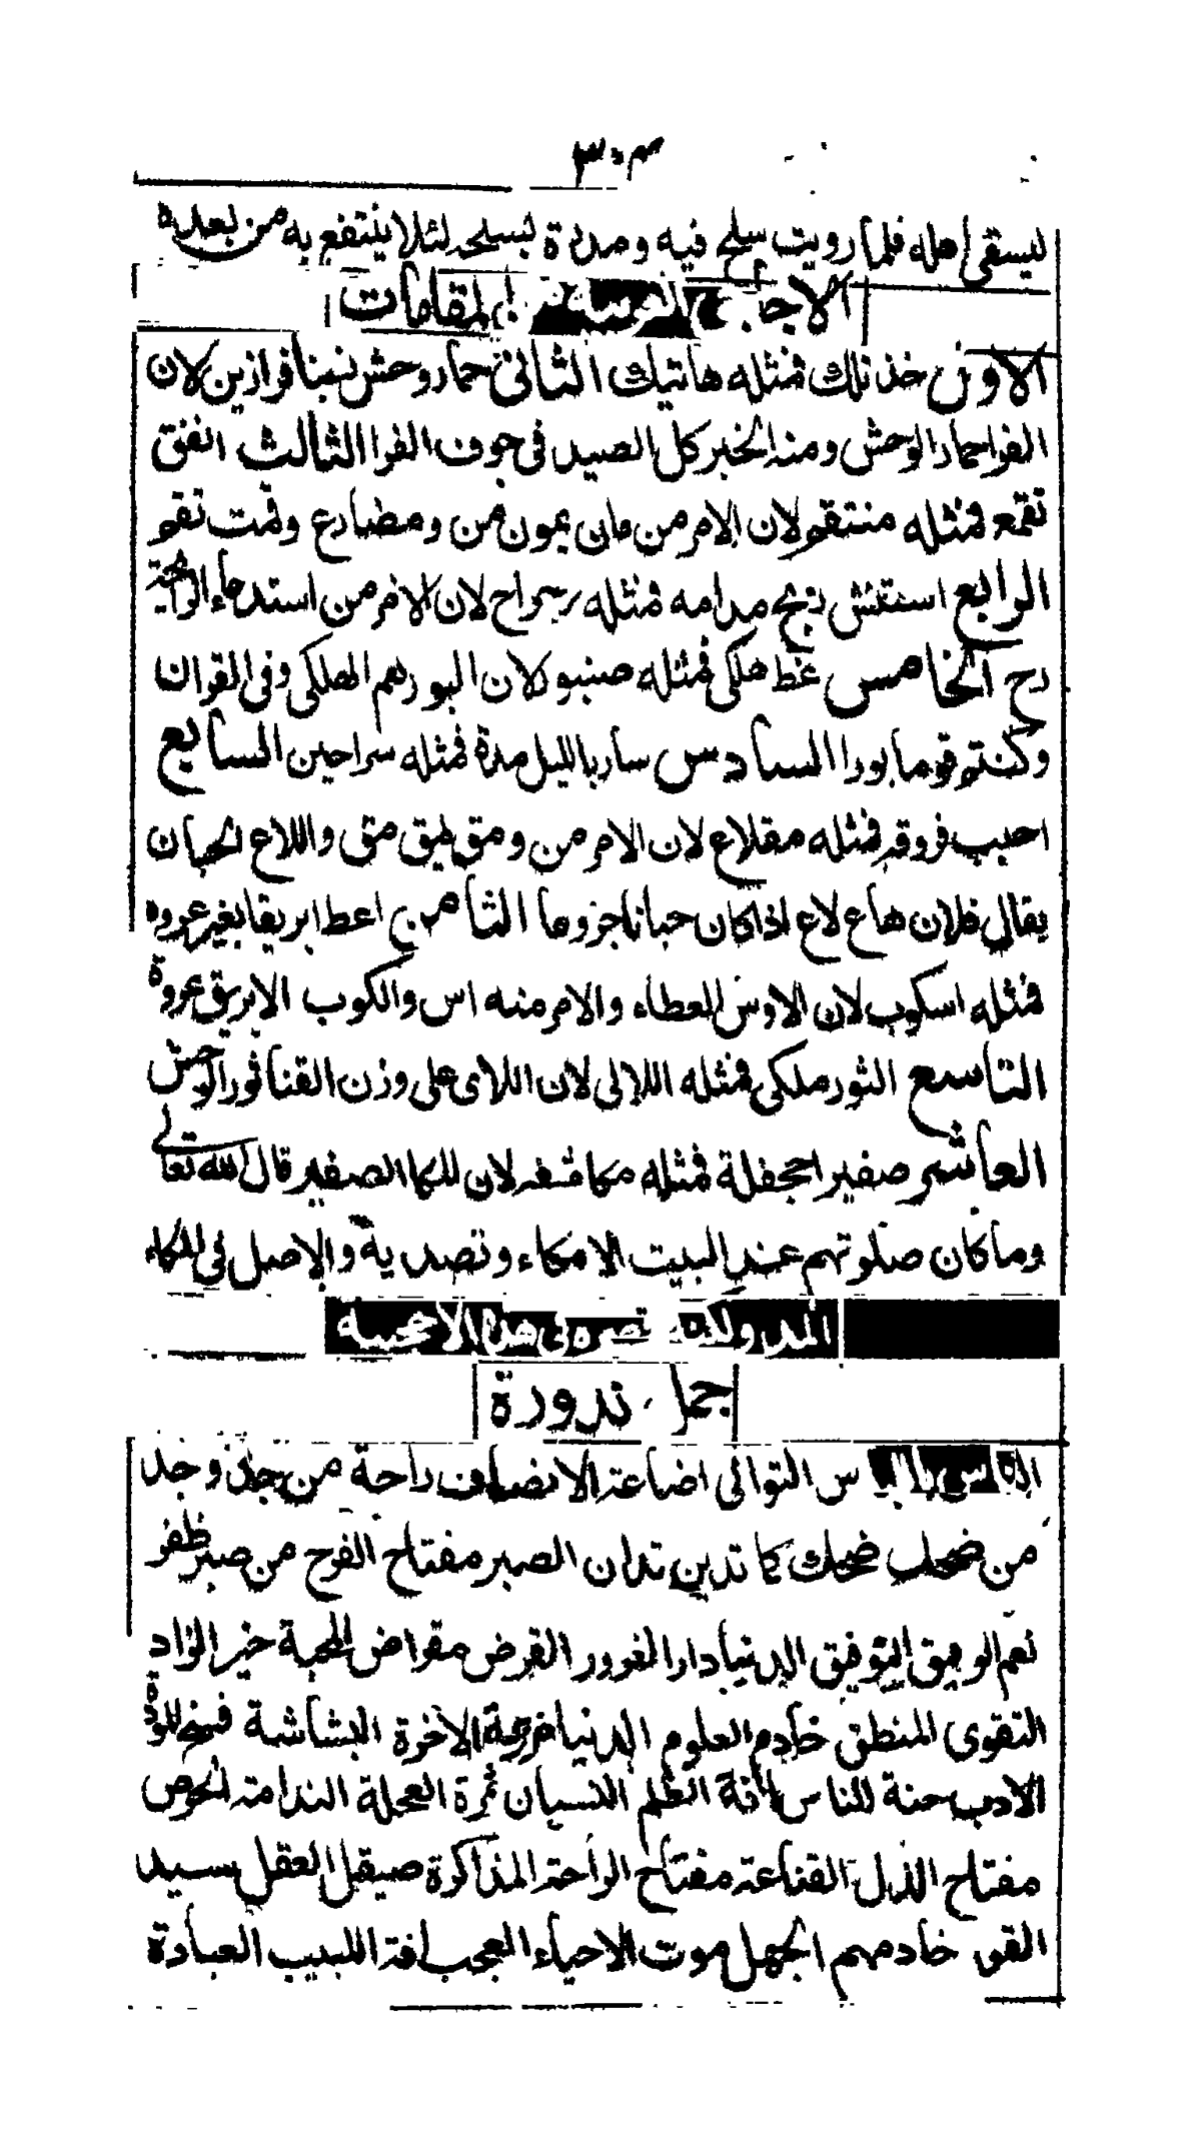 ليسقى اهله فلما رويت سلح فيه ومدرة بسلحه لئلا ينتفع به من بعده
المقامات
الاول خذ تلك فمثله هاتيك الثانى حمار وحش زينا فرازين لان
الفرا حمار الوحش ومنه الخبر كل الصيد فى جوف الفرا الثالث انفق
تقمع فمثله منتقم لان الامر من مان يمون من ومضارع وقمت تقم
الرابع استنش ريح مدامه فمثله رح راح لان الامر من استدعاء الرائحة
رح الخامس غط هلكى فمثله صنبور لان البور هم الهلكى وفى القران
وكنتم قوما بورا السادس سار بالليل مدة فمثله سراحين السابع
احبب فروقه فمثله مقلاع لان الامر من ومق يمق مق واللاع الجبان
يقال فلان هاع لاع اذا كان جبانا جزوعا الثامن اعط ابريقا بغير عروه
فمثله اسكوب لان الاوس العطاء والامر منه اس والكوب الابريق عروة
التاسع الثور ملكى فمثله اللالى لان اللاى على وزن القنا ثور الوحش
العاشر صفير احجفلة فمثله مكاشفه لان المكا الصفير قال الله تعالى
وما كان صلوتهم عند البيت الا مكاء وتصدية والاصل فى المكاء
المد ولكنه قصره فى هذه الاحجية
جمل ندورة
س التوانى اضاعة الانصاف راحة من جد وجد
من ضحك ضحك كما تدين تدان الصبر مفتاح الفرج من صبر ظفر
نعم الرفيق التوفيق الدنيا دار الغرور القرض مقراض المحبة خير الزاد
التقوى المنطق خادم العلوم الدنيا مزرعة الاخرة البشاشة فخ المودة
الادب جنة للناس افة العلم النسيان ثمرة العجلة الندامة الحرص
مفتاح الذل القناعة مفتاح الراحة المذاكرة صيقل العقل سيد
القوم خادمهم الجهل موت الاحياء العجب افة اللبيب العبادة